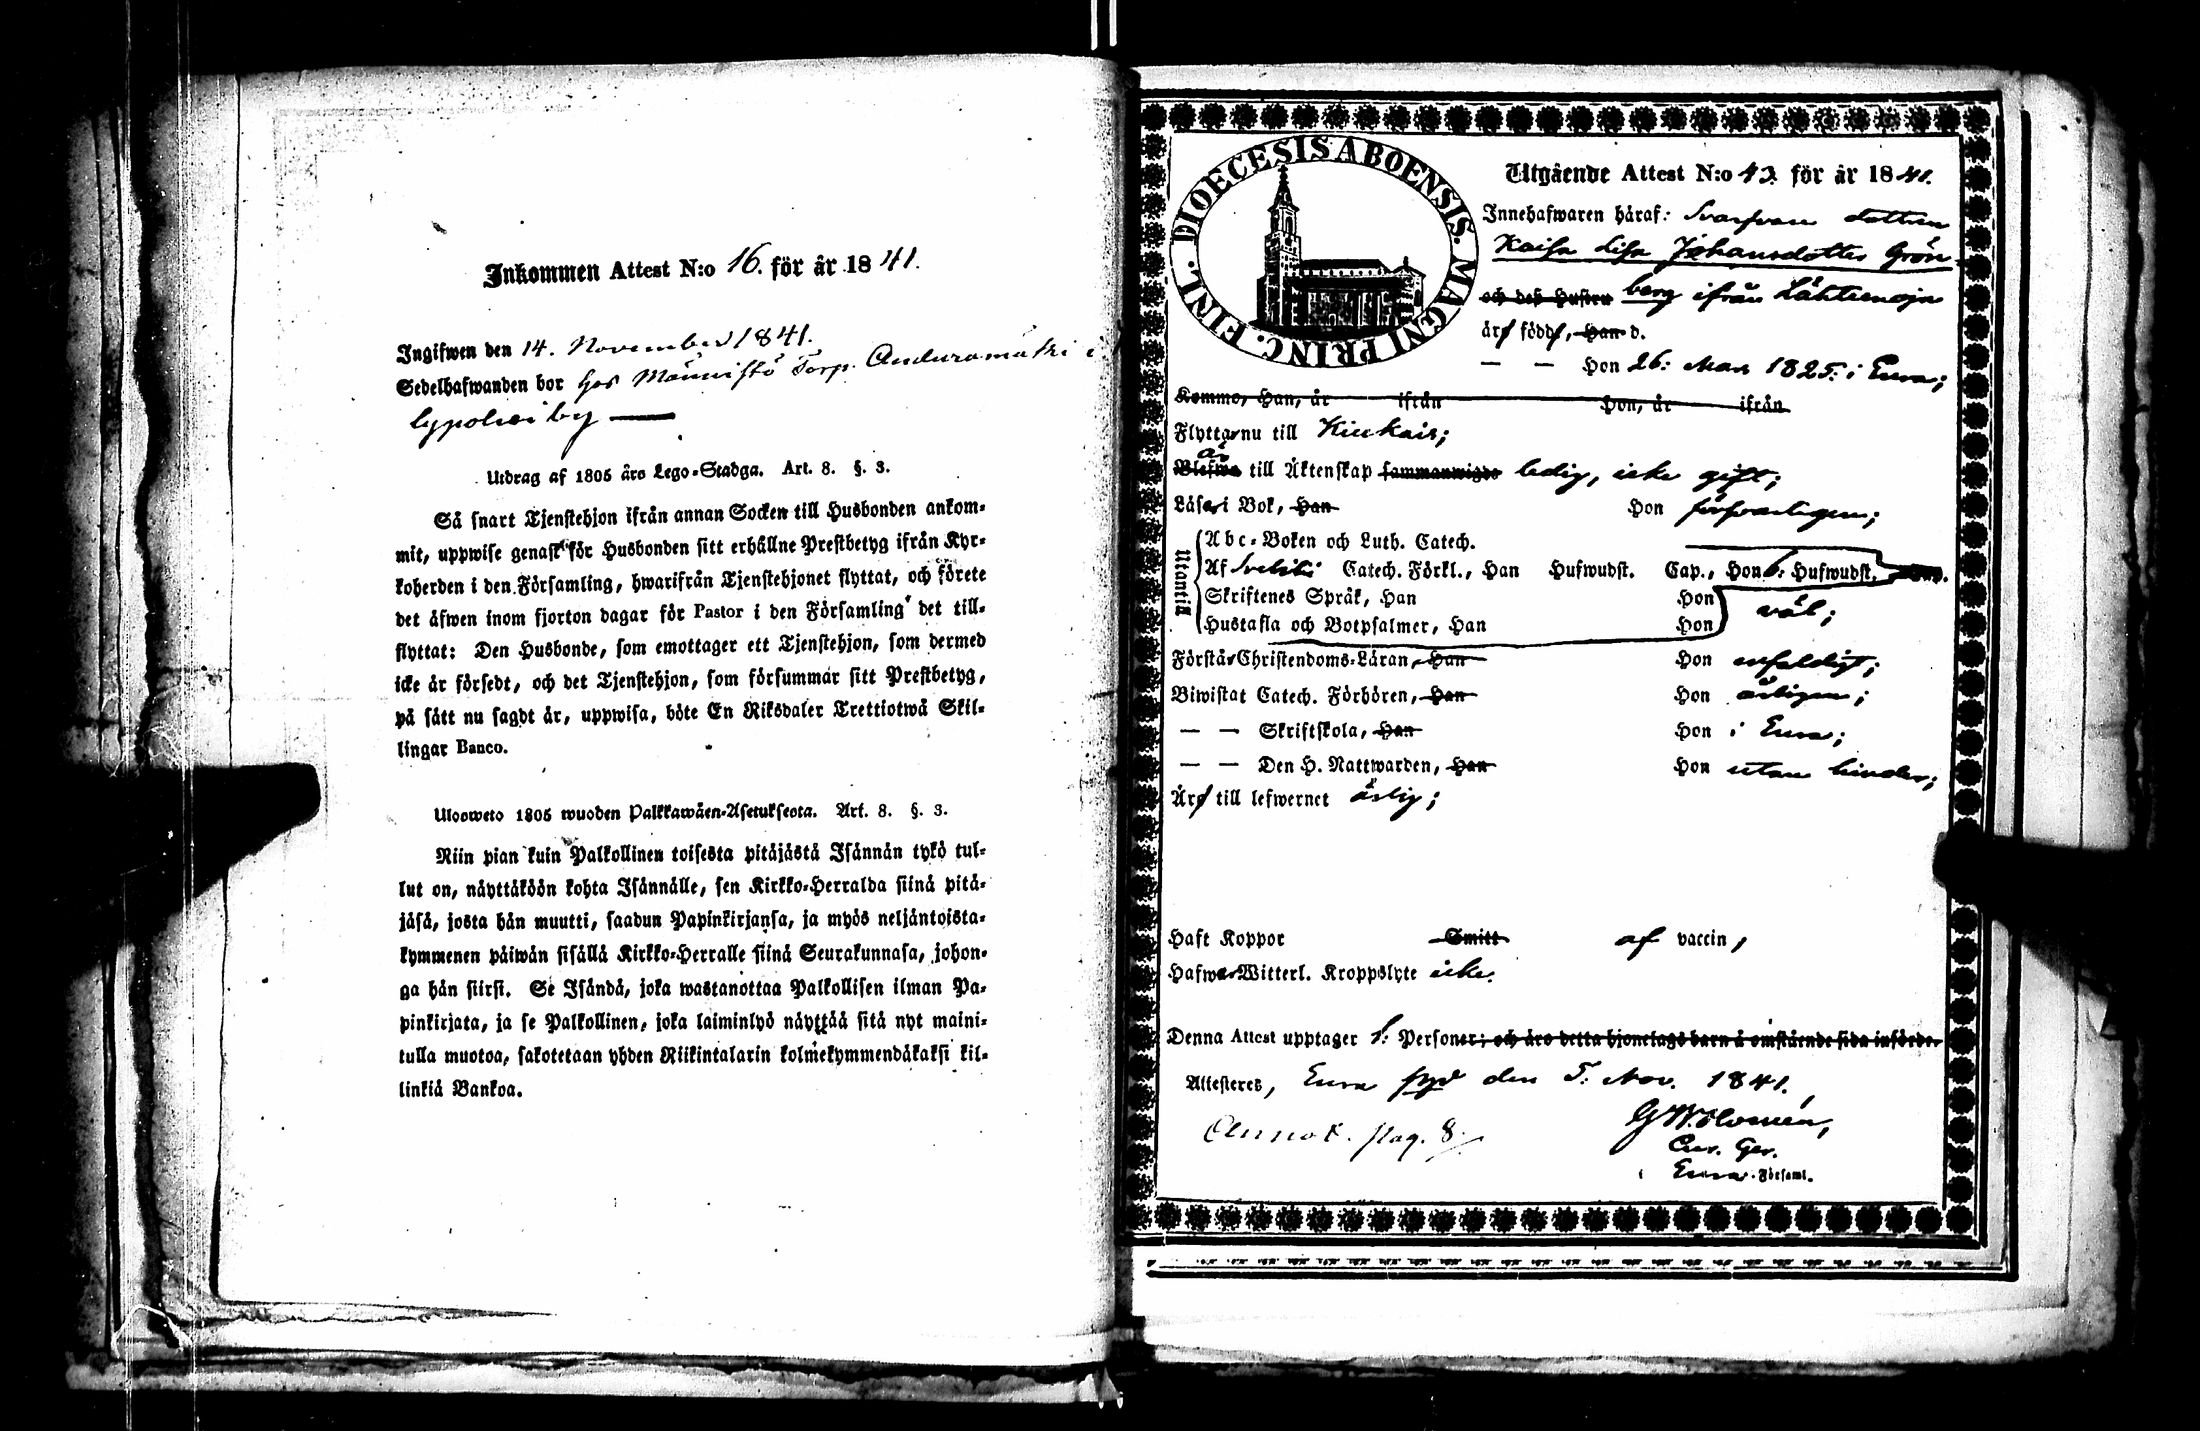 Inkommen Attest N:o 16. för år 1841.
Ingifwen den 14. November 1841.
Sedelhafwanden bor hos Männistö Torp. Anduramäki i
Utdrag af 1805 års Lego-Stadga. Art. 8. §. 3.
Så snart Tjenstehjon ifrån annan Socken till Husbonden ankom-
mit, uppwise genast för Husbonden sitt erhållne Prestbetyg ifrån Kyr-
koherden i den Församling, hwarifrån Tjenstehjonet flyttat, och förete
det äfwen inom fjorton dagar för Pastor i den Församling det till-
flyttat: Den Husbonde, som emottager ett Tjenstehjon, som dermed
icke är försedt, och det Tjenstehjon, som försummar sitt Prestbetyg,
på sätt nu sagdt är, uppwisa, böte En Riksdaler Trettiotwå Skil-
lingar Banco.
Ulosweto 1805 wuoden Palkkawäen-Asetuksesta. Art. 8. §. 3.
Niin pian kuin Palkollinen toisesta pitäjästä Isännän tykö tul-
lut on, näyttäköön kohta Isännälle, sen Kirkko-Herralda siinä pitä-
jäsä, josta hän muutti, saadun Papinkirjansa, ja myös neljäntoista-
kymmenen päiwän sisällä Kirkko-Herralle siinä Seurakunnasa, johon-
ga hän siirsi. Se Isändä, joka wastanottaa Palkollisen ilman Pa-
pinkirjata, ja se Palkollinen, joka laiminlyö näyttää sitä nyt maini-
tulla muotoa, sakotetaan yhden Riikintalarin kolmekymmendäkaksi kil-
linkiä Bankoa.
DIOECESIS ABOENSIS. MAGNI PRINC. FINL.
Utgående Attest N:o 43. för år 1841.
Innehafwaren häraf: Svarfvare dottren
Kaisa Lisa Johansdotter Grön-
och deß Hustru berg ifrån Lähteenoja
är född, Han d.
— — Hon 26: Mars 1825: i Eura;
Komme, Han, år ifrån Hon, år ifrån
Flyttar nu till Kiukais;
är
Blefwe till Äktenskap sammanwigde ledig, icke gift;
Läser i Bok, Han Hon försvarligen;
Utantill
Abc-Boken och Luth. Catech.
Af Svebilii Catech. Förkl., Han Hufwudst. Cap., Hon 6: Hufwudst. Cap.
Skriftenes Språk, Han Hon väl;
Hustafla och Botpsalmer, Han Hon
Förstår Christendoms-Läran, Han Hon enfaldigt;
Biwistat Catech. Förhören, Han Hon årligen;
— — Skriftskola, Han Hon i Eura;
— — Den H. Nattwarden, Han Hon utan hinder;
Är till lefwernet ärlig;
Haft Koppor Smitt af vaccin,
Hafwer Witterl. Kroppslyte icke.
Denna Attest upptager 1: Personer; och äro detta hjonelags barn å omstående sida införde.
Attesteres, Eura pgd den 5: Nov. 1841.
Annot. pag. 8.
G W Homén,
Cur. Ger.
i Eura Församl.